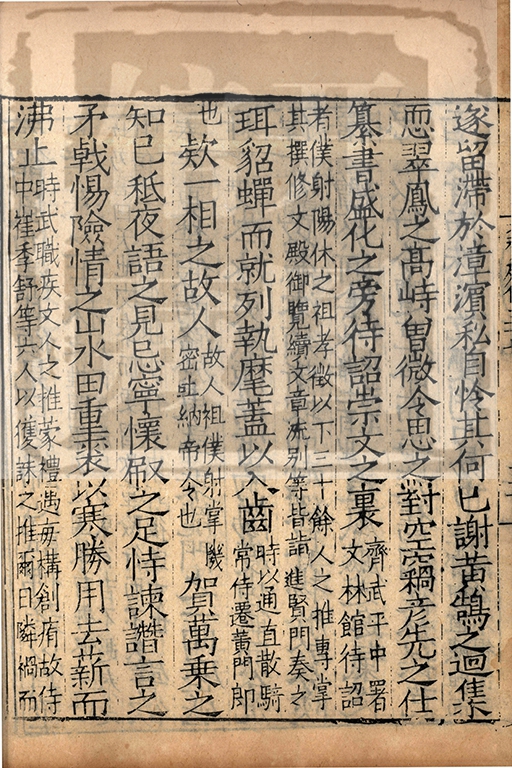 遂留滯於漳濱私自怜其何已謝黃鵠之迴集
恧翠鳳之高峙曾微令思之對空竊彥先之仕
纂書盛化之旁待詔崇文之裏齊武平中署文林館待詔
者僕射陽休之祖孝徵以下三十餘人之推專掌
其撰修文殿御覽續文章流別等皆詣進賢門奏之
珥貂蟬而就列執麾蓋以入齒時以通直散騎常侍遷黃門郎
也欵一相之故人故人祖僕射掌機密吐納帝令也賀萬乘之
知已秪夜語之見忌寧懷㕞之足恃諫譖言之
矛戟惕險情之山水田重裘以寒勝用去薪而
沸止時武職疾文人之推蒙禮遇每構創痏故侍中崔季舒等六人以獲誅之推爾日隣禍而